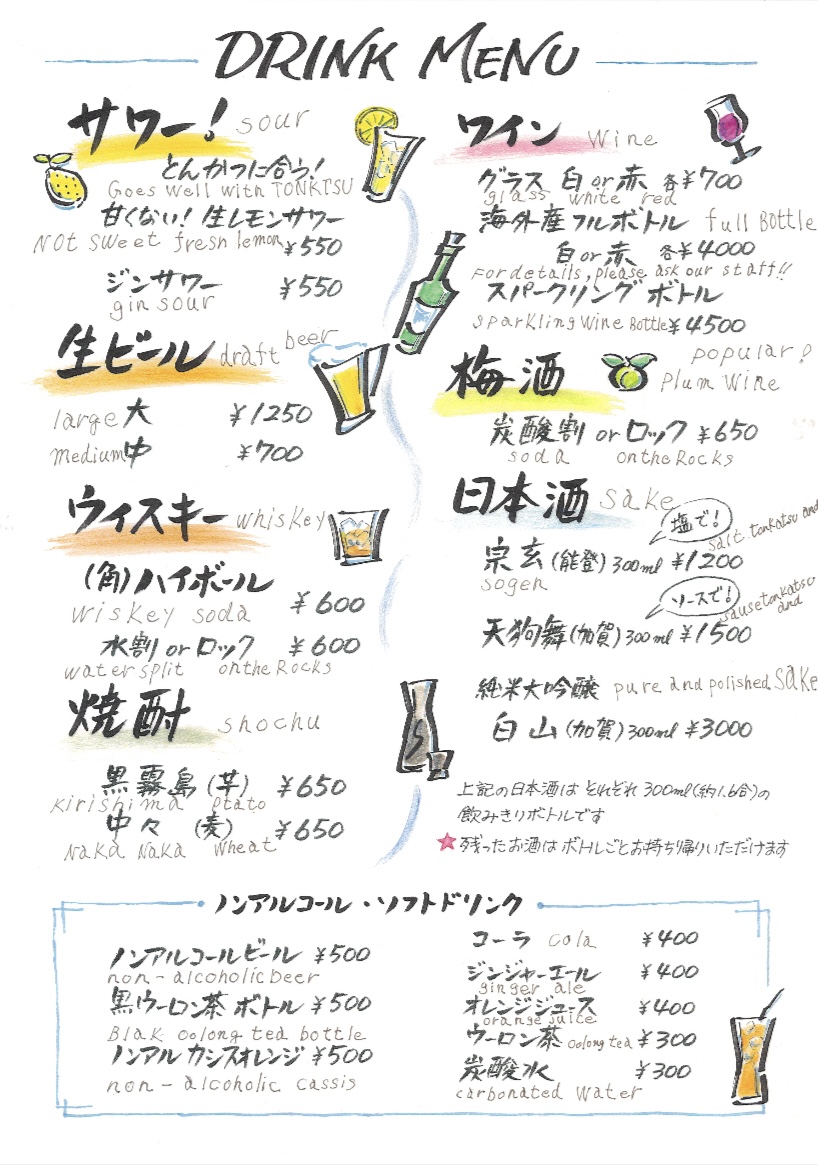 DRINK MENU
サワー! sour
とんかつに合う!
Goes well with TONKTSU
甘くない! 生レモンサワー
Not sweet fresh lemon ¥550
ジンサワー ¥550
gin sour
生ビール draft beer
large 大 ¥1250
medium 中 ¥700
ウィスキー whiskey
(角)ハイボール
wiskey soda ¥600
水割 or ロック ¥600
water split on the Rocks
焼酎 shochu
黒霧島(芋) ¥650
kirishima Ptato
中々 (麦) ¥650
Naka Naka wheat
ワイン wine
グラス 白 or 赤 各¥700
glass white red
海外産フルボトル full Bottle
白 or 赤 各¥4000
For details, please ask our staff!!
スパークリングボトル
sparkling wine Bottle ¥4500
梅酒 popular!
Plum wine
炭酸割 or ロック ¥650
soda on the Rocks
日本酒 sake
塩で!
salt tonkatsu and
宗玄(能登)300ml ¥1200
sogen
ソースで!
sause tonkatsu and
天狗舞(加賀)300ml ¥1500
純米大吟醸 pure and polished sake
白山(加賀)300ml ¥3000
上記の日本酒は それぞれ 300ml(約1.6合)の
飲みきりボトルです
★残ったお酒はボトルごとお持ち帰りいただけます
ノンアルコール・ソフトドリンク
ノンアルコールビール ¥500
non-alcoholic beer
黒ウーロン茶 ボトル ¥500
Blak oolong tea bottle
ノンアルカシスオレンジ ¥500
non-alcoholic cassis
コーラ cola ¥400
ジンジャーエール ¥400
ginger ale
オレンジジュース ¥400
orange juice
ウーロン茶 oolong tea ¥300
炭酸水 ¥300
carbonated water